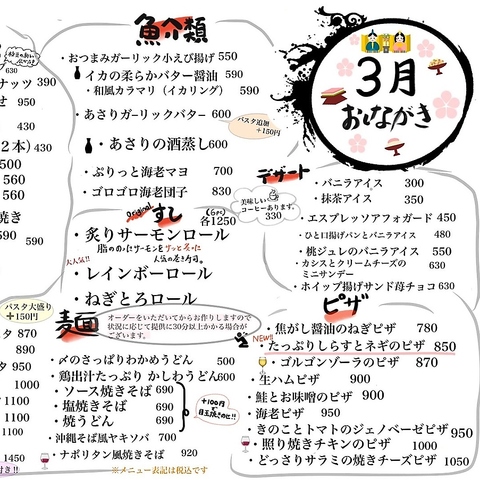 630
ナッツ 390
せ 950
430
2本) 430
500
560
560
焼き
590
590
パスタ大盛り
+150円
タ 870
タ 890
1100
1100
1000
1450
魚介類
・おつまみガーリック小えび揚げ 550
・イカの柔らかバター醤油 590
・和風カラマリ（イカリング） 590
・あさりガーリックバター 600
パスタ追加
+150円
・あさりの酒蒸し 600
・ぷりっと海老マヨ 700
・ゴロゴロ海老団子 830
Original
すし
(6pc)
各1250
・炙りサーモンロール
大人気!!
・レインボーロール
・ねぎとろロール
オーダーをいただいてからお作りしますので
状況に応じて提供に30分以上かかる場合が
ございます。
麺
・〆のさっぱりわかめうどん 500
・鶏出汁たっぷり かしわうどん 600
・ソース焼きそば 690
・塩焼きそば 690
・焼うどん 690
+100円で
目玉焼きのせ!!
・沖縄そば風ヤキソバ 700
・ナポリタン風焼きそば 920
※メニュー表記は税込です
3月
おしながき
デザート
美味しい
コーヒーあります。
330
・バニラアイス 300
・抹茶アイス 350
・エスプレッソアフォガード 450
・ひと口揚げパンとバニラアイス 480
・桃ジュレのバニラアイス 550
・カシスとクリームチーズの
ミニサンデー 630
・ホイップ揚げサンド苺チョコ 630
ピザ
・焦がし醤油のねぎピザ 780
NEW!!
・たっぷりしらすとネギのピザ 850
・ゴルゴンゾーラのピザ 870
・生ハムピザ 900
・鮭とお味噌のピザ 900
・海老ピザ 950
・きのことトマトのジェノベーゼピザ 950
・照り焼きチキンのピザ 1000
・どっさりサラミの焼きチーズピザ 1050